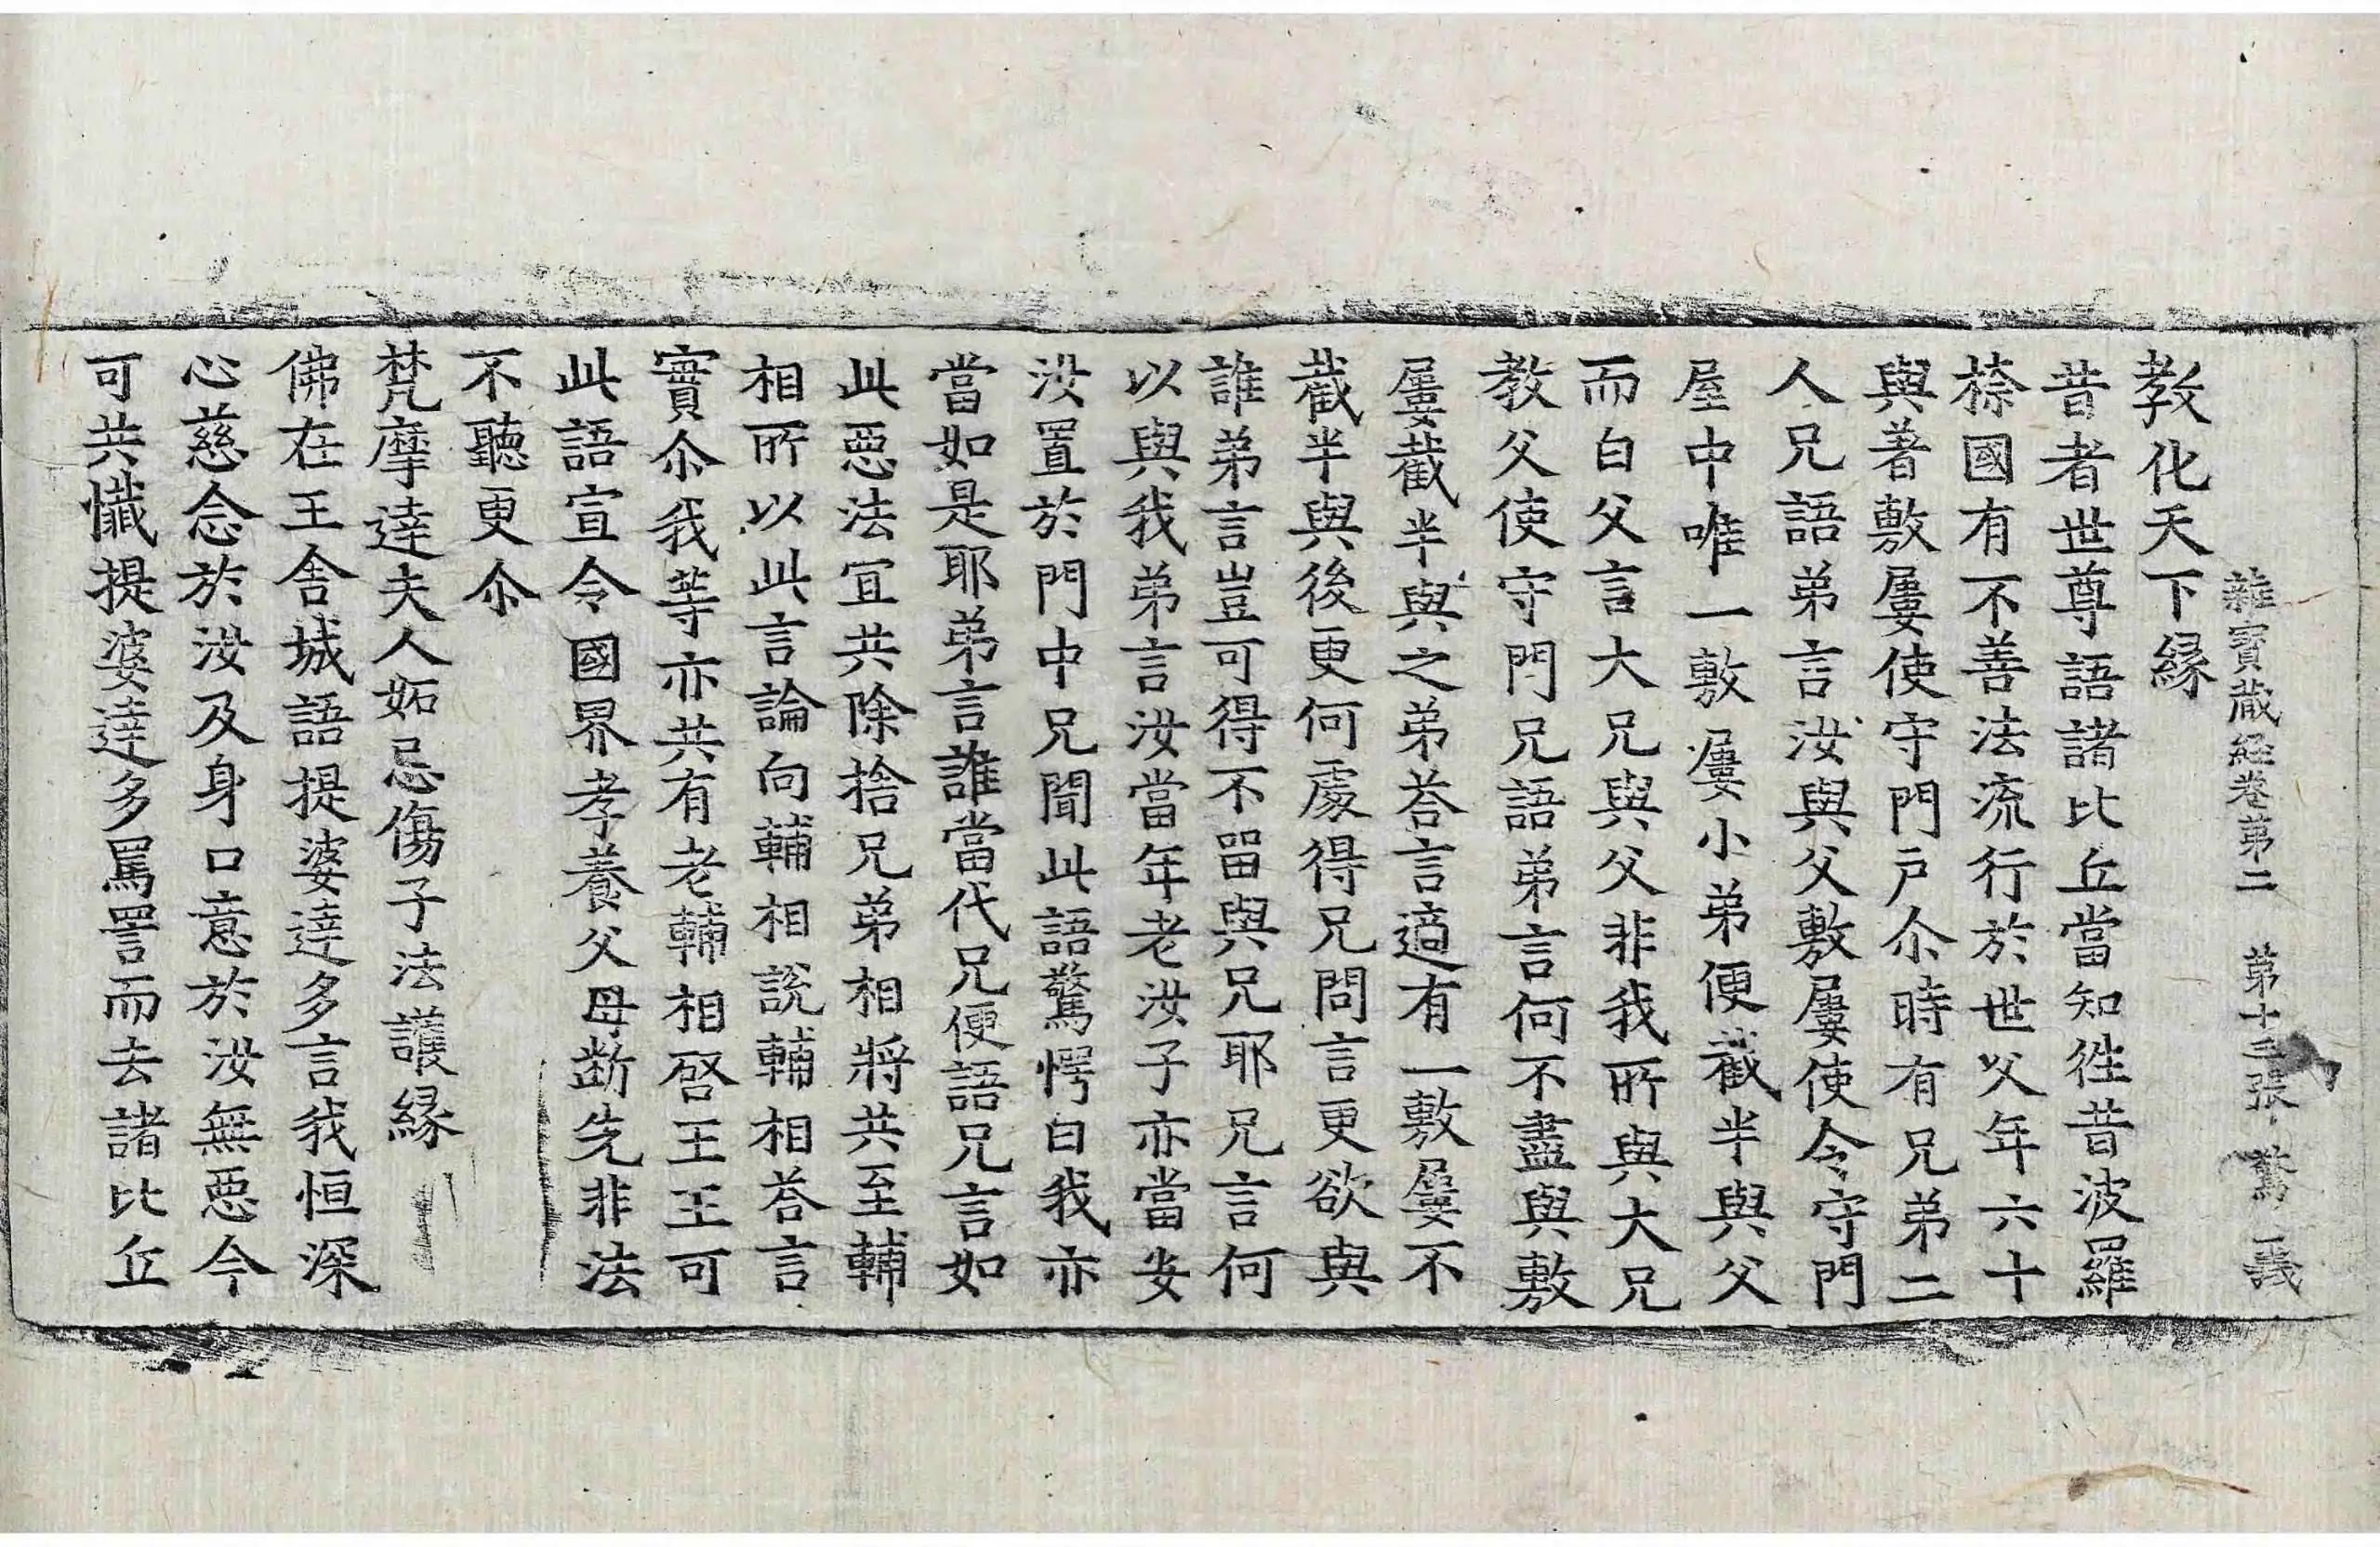 雜寶藏經卷第二 第十三張 驚 議
教化天下緣
昔者世尊語諸比丘當知徃昔波羅
㮈國有不善法流行於世父年六十
與著敷屢使守門戶尒時有兄弟二
人兄語弟言汝與父敷屢使令守門
屋中唯一敷屢小弟便截半與父
而白父言大兄與父非我所與大兄
教父使守門兄語弟言何不盡與敷
屢截半與之弟荅言適有一敷屢不
截半與後更何處得兄問言更欲與
誰弟言豈可得不留與兄耶兄言何
以與我弟言汝當年老汝子亦當安
汝置於門中兄聞此語驚愕曰我亦
當如是耶弟言誰當代兄便語兄言如
此惡法冝共除捨兄弟相將共至輔
相所以此言論向輔相說輔相荅言
實尒我等亦共有老輔相啓王王可
此語宣令國界孝養父母斷先非法
不聽更尒
梵摩達夫人妬忌傷子法護緣
佛在王舍城語提婆達多言我恒深
心慈念於汝及身口意於汝無惡今
可共懺提婆達多罵詈而去諸比丘